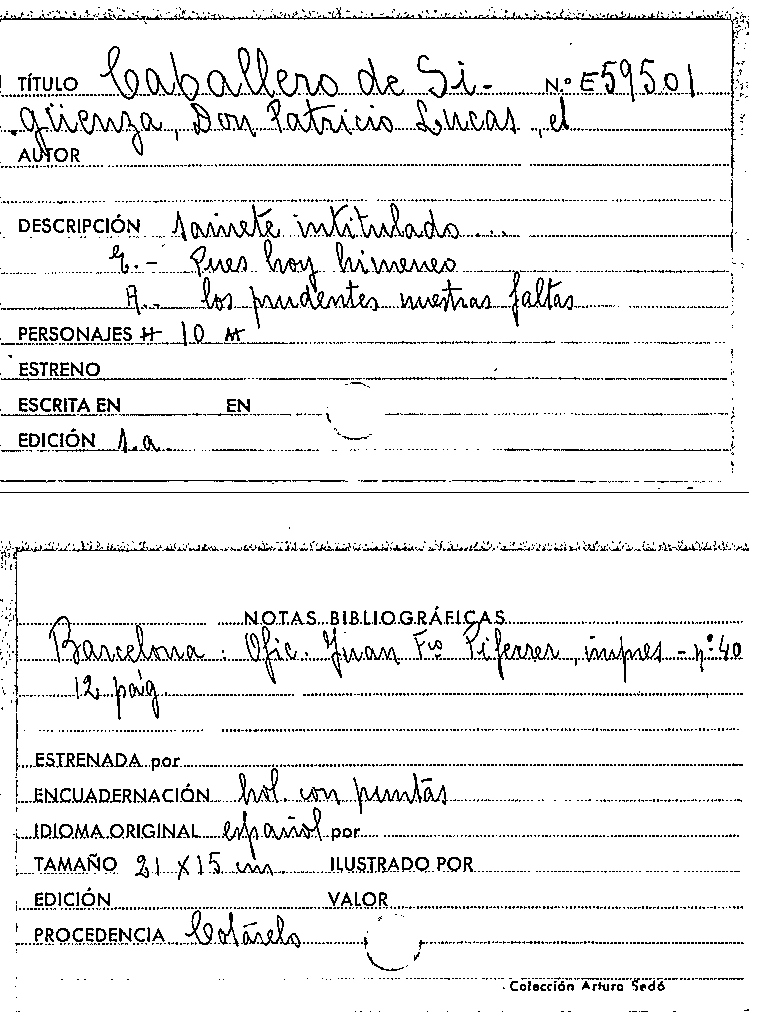 TÍTULO Caballero de Si- N.º E 59501
güenza, Don Patricio Lucas, el
AUTOR
DESCRIPCIÓN sainete intitulado...
E.- Pues hoy himeneo
A.- los prudentes nuestras faltas
PERSONAJES H 10 M
ESTRENO
ESCRITA EN EN
EDICIÓN s.a.
NOTAS BIBLIOGRÁFICAS
Barcelona: Ofic. Juan Fco Piferrer, impres - nº 40
12 pág.
ESTRENADA por
ENCUADERNACIÓN hol. con puntas
IDIOMA ORIGINAL español por
TAMAÑO 21 X 15 cm. ILUSTRADO POR
EDICIÓN VALOR
PROCEDENCIA Cotarelo
Colección Arturo Sedó